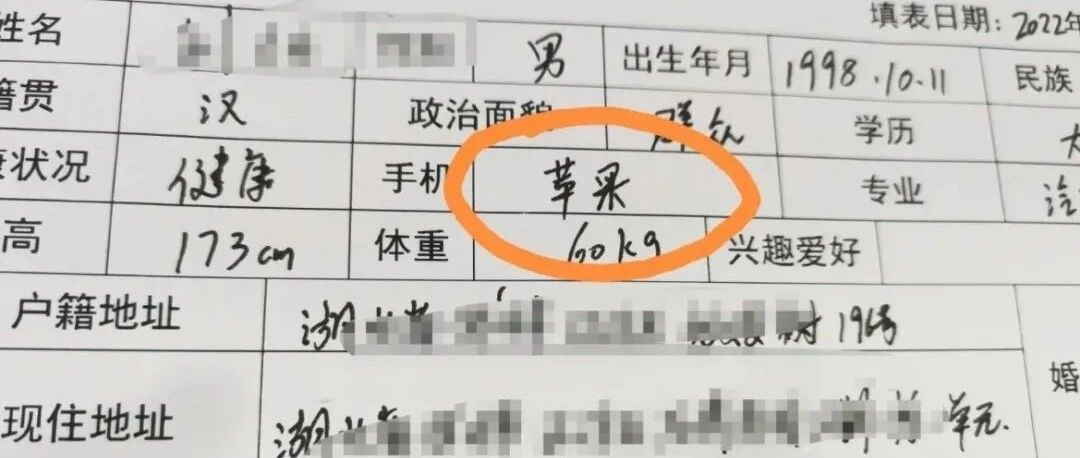 填表日期：2022年
姓名 男 出生年月 1998.10.11 民族
籍贯 汉 政治面貌 群众 学历 大
康状况 健康 手机 苹果 专业 汽
高 173cm 体重 60kg 兴趣爱好
户籍地址 湖北省 村196号
婚
现住地址 湖北省 单元.